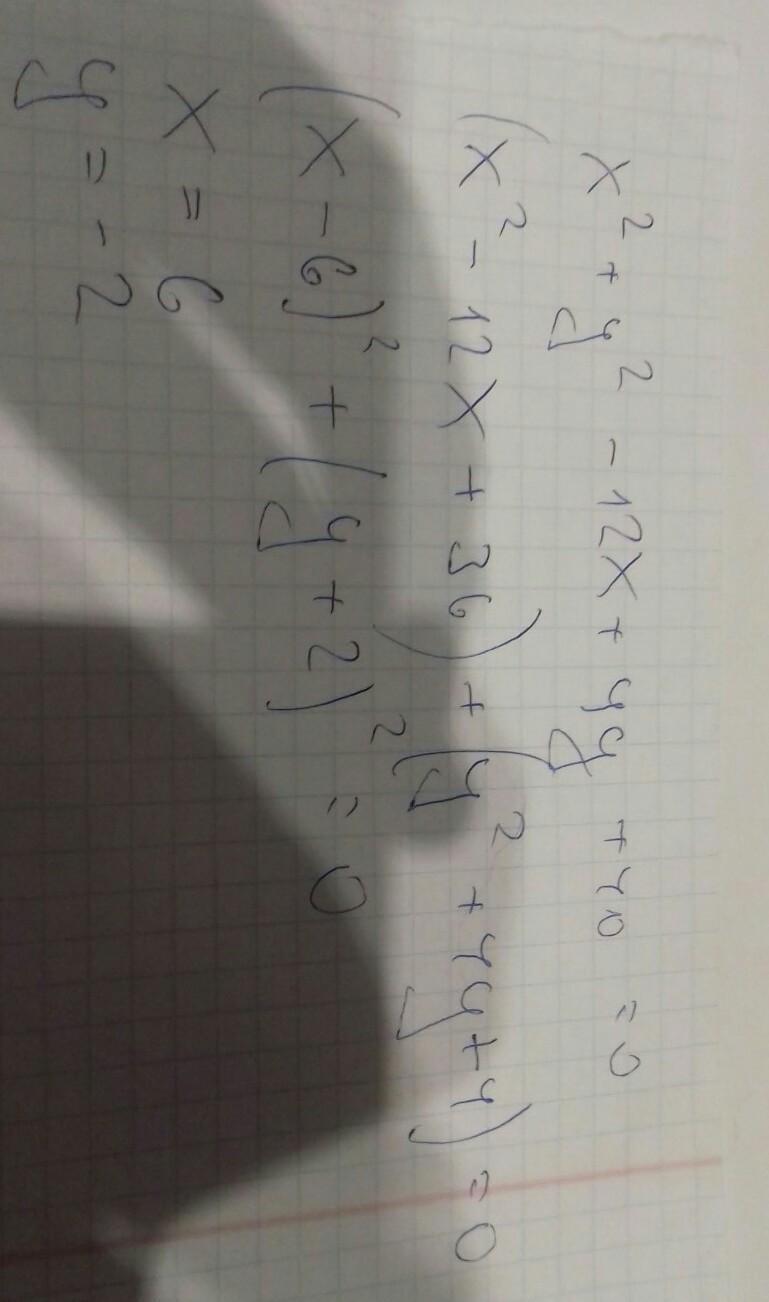 x² + y² - 12x + 4y + 40 = 0
(x² - 12x + 36) + (y² + 4y + 4) = 0
(x - 6)² + (y + 2)² = 0
x = 6
y = - 2